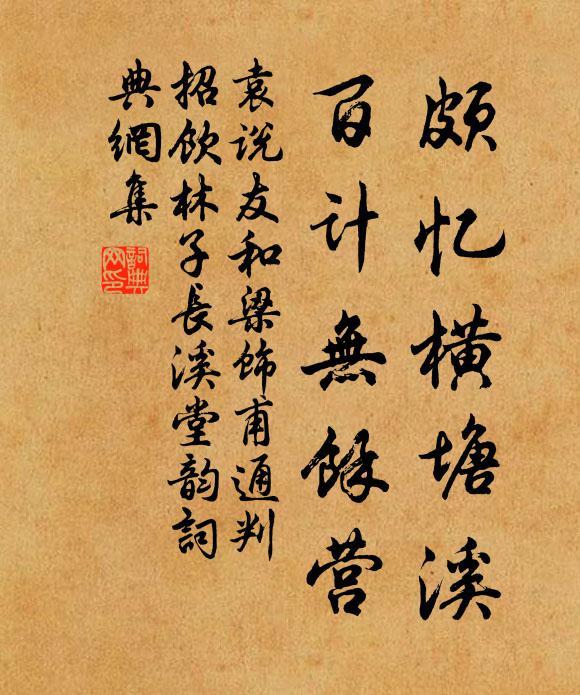 颇忆横塘溪
百计無餘营
袁说友和梁饰甫通判
招饮林子長溪堂韵詞
典網集
詞典
网印